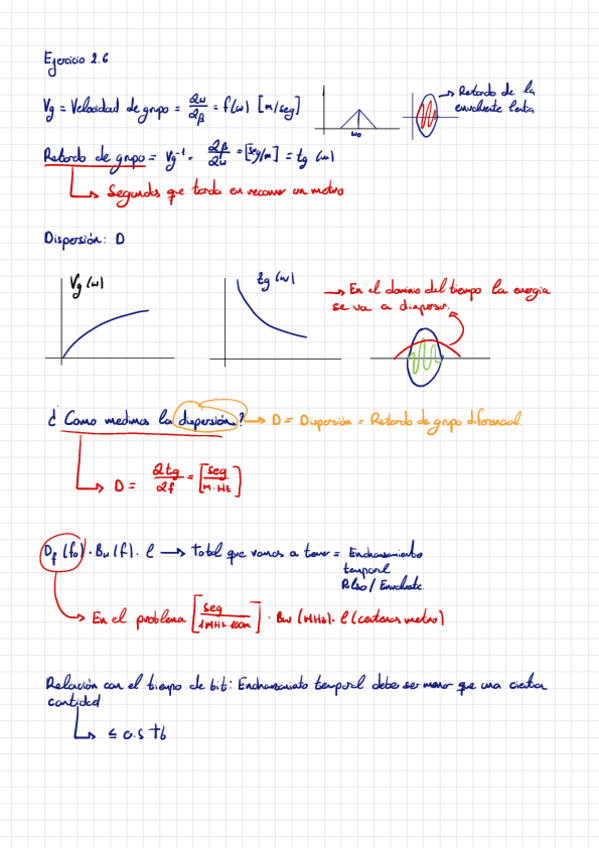 Ejercicio 2.6
Vg = Velocidad de grupo = ∂ω/∂β = f(ω) [m/seg]
ω₀
→ Retardo de la
envolvente lenta
Retardo de grupo = Vg⁻¹ = ∂β/∂ω = [seg/m] = tg (ω)
↳ Segundos que tarda en recorrer un metro
Dispersión: D
Vg (ω)
tg (ω)
→ En el dominio del tiempo la energia
se va a dispersar.
¿ Como medimos la dispersión? → D = Dispersión = Retardo de grupo diferencial.
↳ D = ∂tg/∂f = [seg/M·Hz]
Df (f₀) · Bw (f) · l → Total que vamos a tener = Enchanamiento
temporal
Pulso / Envolvente.
↳ En el problema [seg/1MHz·100m] · Bw (MHz) · l (centenas metro)
Relación con el tiempo de bit: Enchanamiento temporal debe ser menor que una cierta
cantidad
↳ ≤ 0.5 Tb